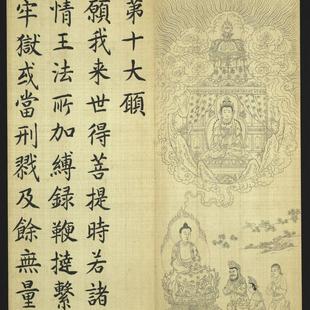 第十大願
願我来世得菩提時若諸
情王法所加縛録鞭撻繫
牢獄或當刑戮及餘無量